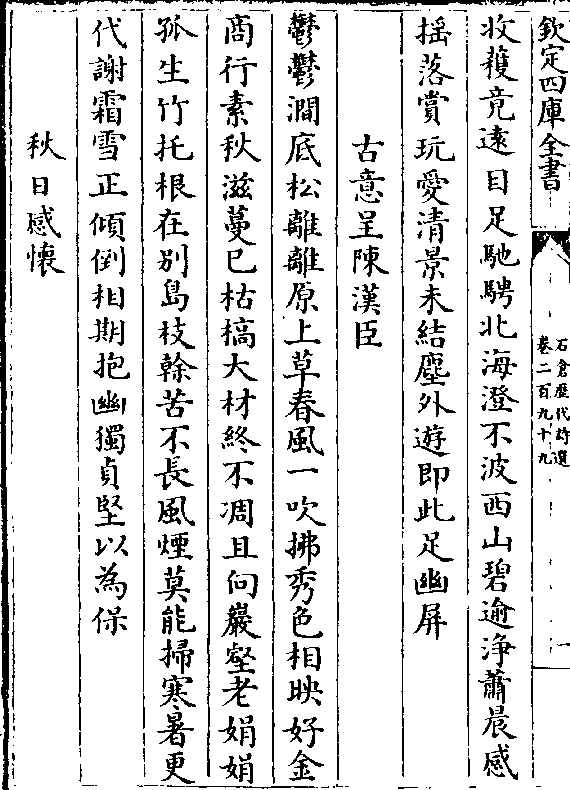 欽定四庫全書
石倉歷代詩選
卷二百九十九
一
收穫竟遠目足馳騁北海澄不波西山碧逾浄蕭晨感
揺落賞玩愛清景未結塵外遊即此足幽屏
古意呈陳漢臣
鬱鬱澗底松離離原上草春風一吹拂秀色相映好金
商行素秋滋蔓已枯槁大材終不凋且向巖壑老娟娟
孤生竹托根在别島枝榦苦不長風煙莫能掃寒暑更
代謝霜雪正傾倒相期抱幽獨貞堅以為保
秋日感懷